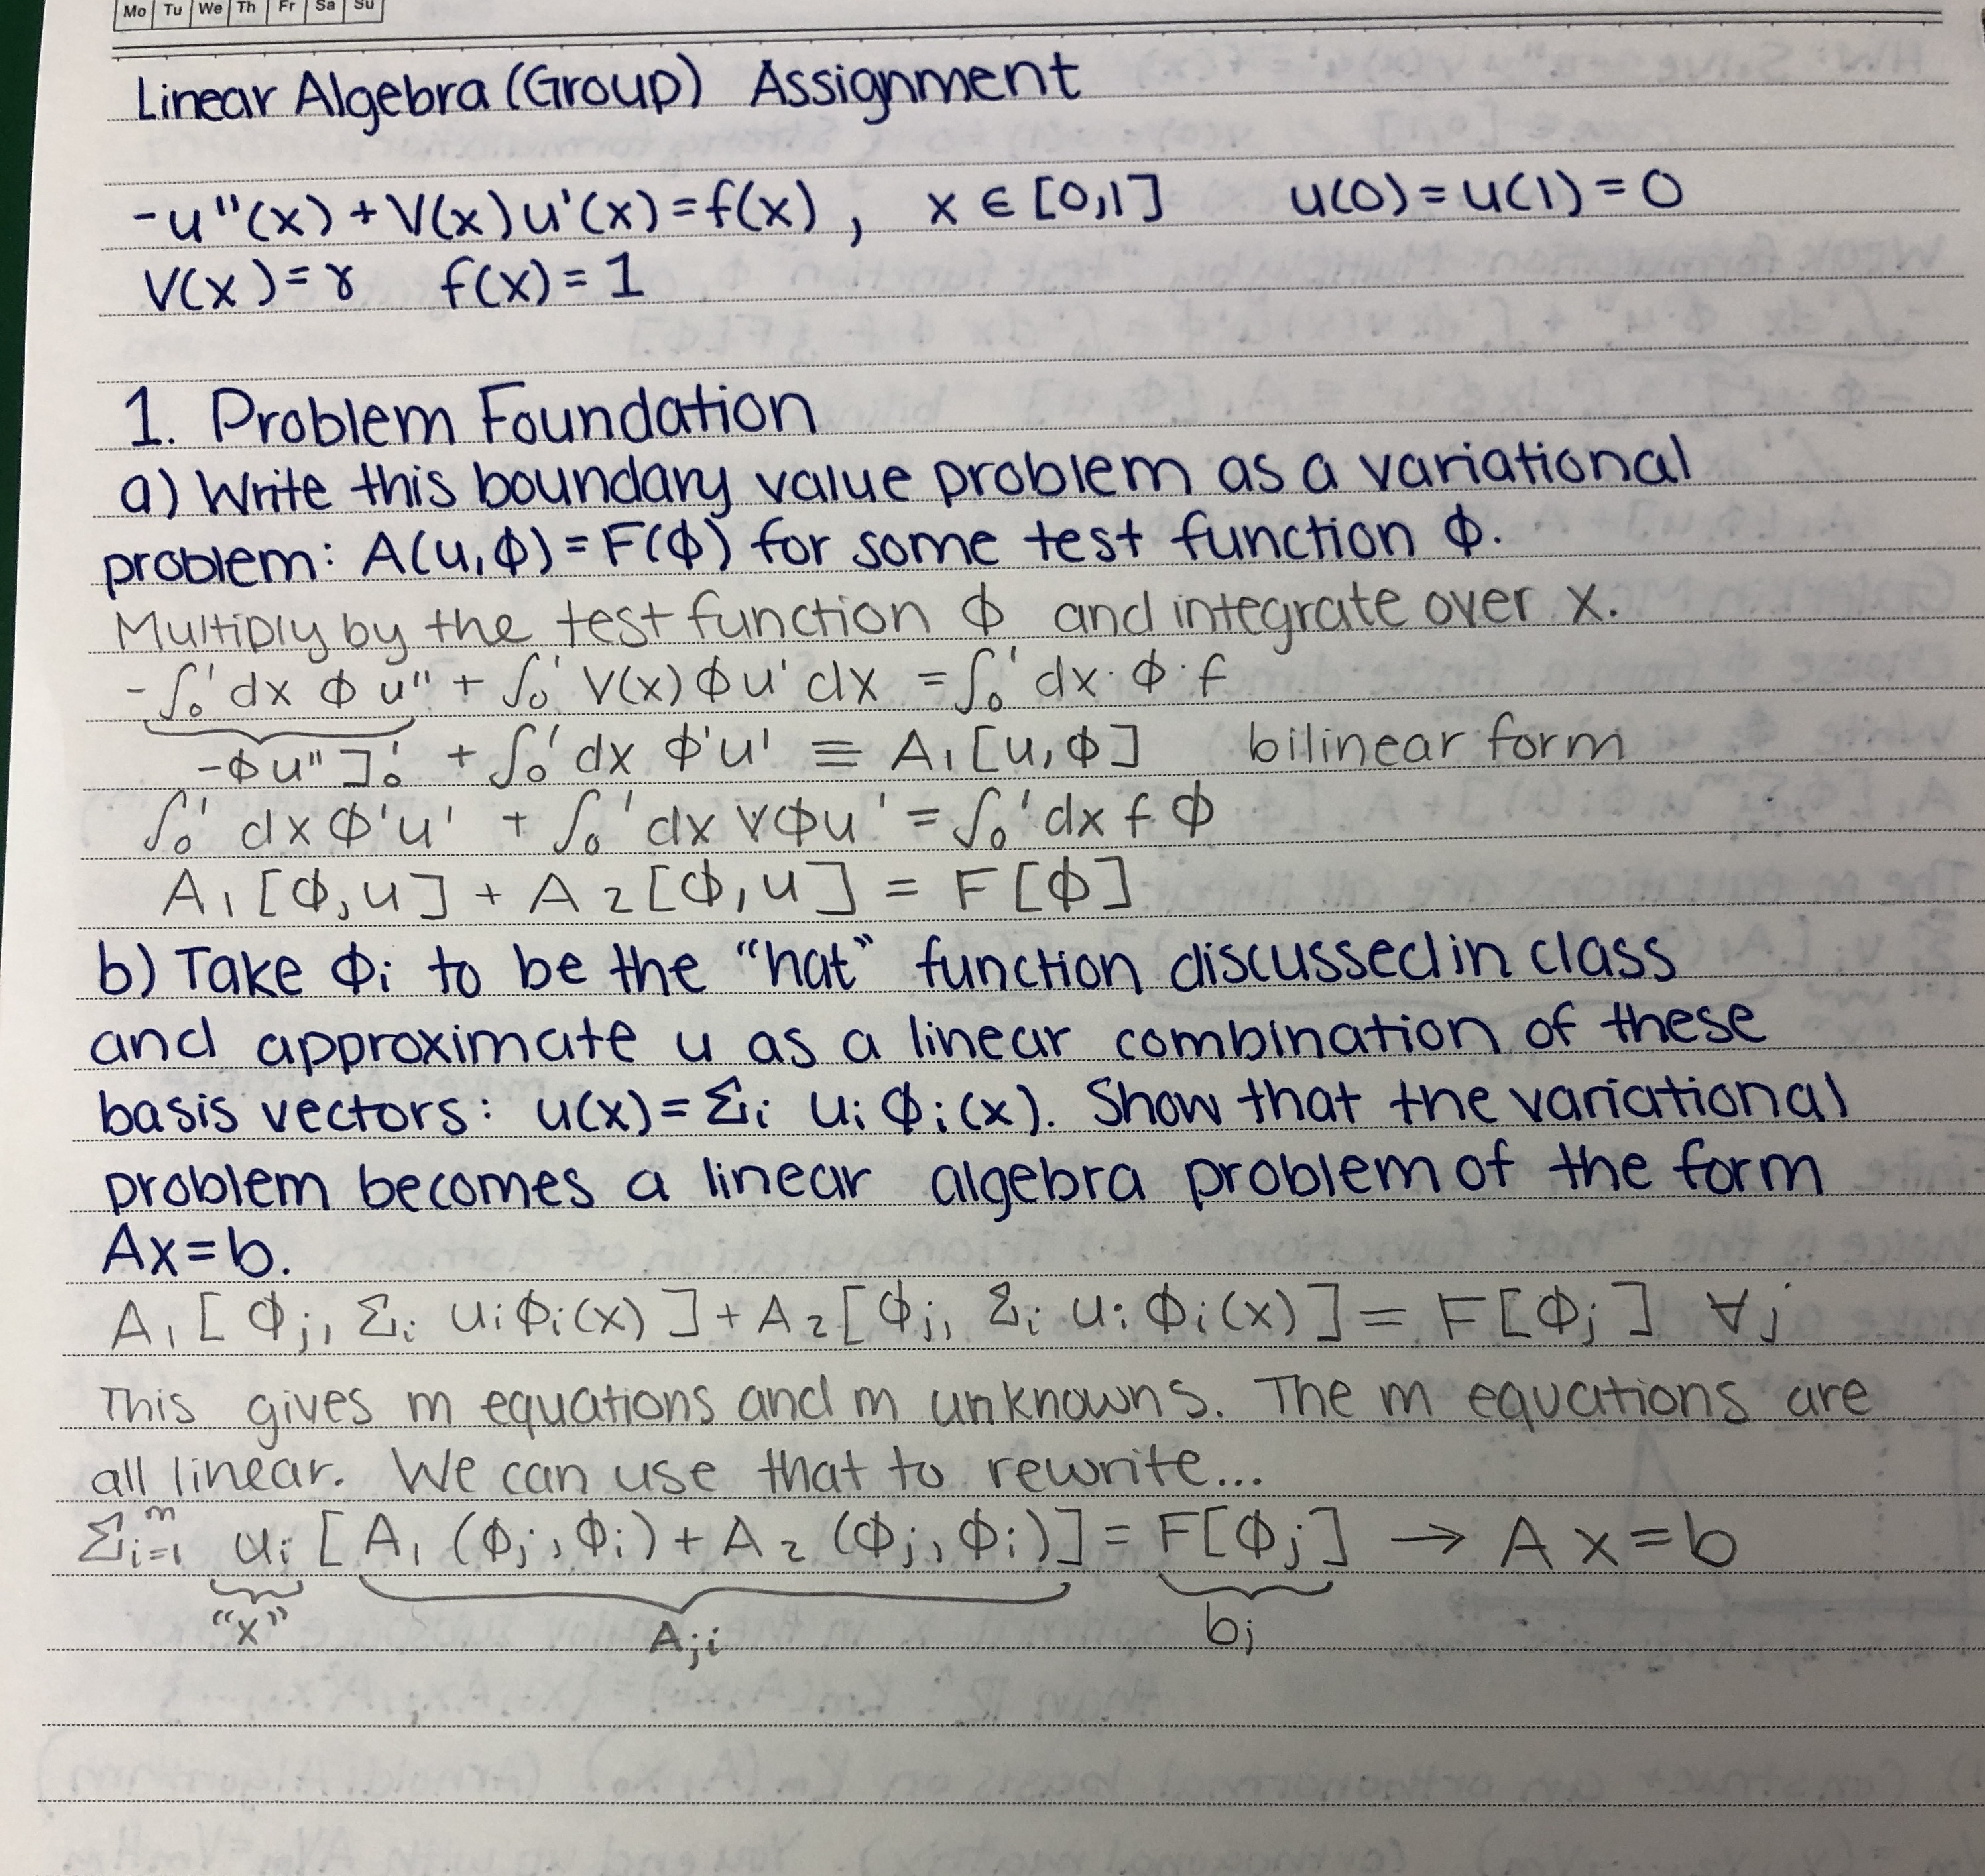 Mo Tu We Th Fr Sa Su
Linear Algebra (Group) Assignment
-u"(x) + V(x)u'(x) = f(x) , x ∈ [0,1] u(0) = u(1) = 0
V(x) = γ f(x) = 1
1. Problem Foundation
a) Write this boundary value problem as a variational
problem: A(u,ϕ) = F(ϕ) for some test function ϕ.
Multiply by the test function ϕ and integrate over x.
-∫₀¹ dx ϕ u" + ∫₀¹ V(x) ϕu' dx = ∫₀¹ dx · ϕ · f
-ϕu"]₀¹ + ∫₀¹ dx ϕ'u' ≡ A₁[u,ϕ] bilinear form
∫₀¹ dx ϕ'u' + ∫₀¹ dx vϕu' = ∫₀¹ dx f ϕ
A₁[ϕ,u] + A₂[ϕ,u] = F[ϕ]
b) Take ϕi to be the "hat" function discussed in class
and approximate u as a linear combination of these
basis vectors: u(x) = Σi ui ϕi(x). Show that the variational
problem becomes a linear algebra problem of the form
Ax=b.
A₁[ϕj, Σi uiϕi(x)] + A₂[ϕj, Σi ui ϕi(x)] = F[ϕj] ∀j
This gives m equations and m unknowns. The m equations are
all linear. We can use that to rewrite...
Σᵢ₌₁ᵐ ui [A₁(ϕj,ϕi) + A₂(ϕj,ϕi)] = F[ϕj] → Ax=b
"x" Aji bj